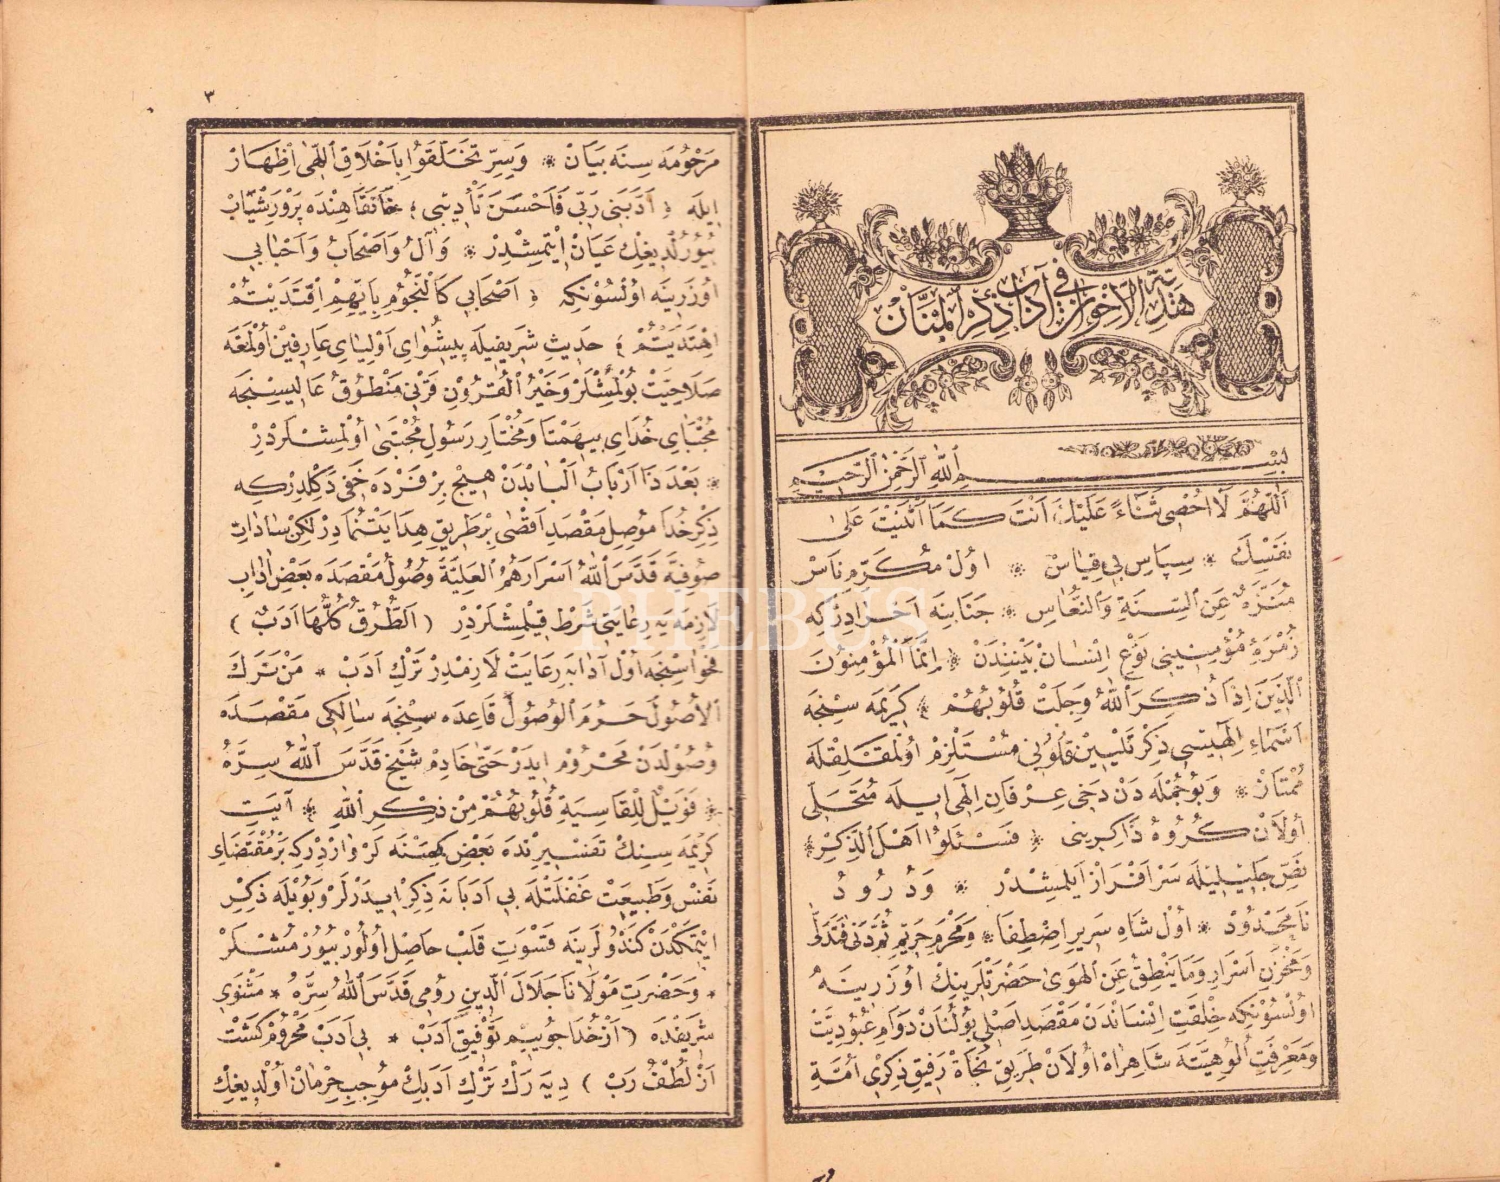 هَدِيَّةُ الْاِخْوَانِ فِى آدَابِ ذِكْرِ الْمَنَّانْ
بِسْمِ اللّٰهِ الرَّحْمٰنِ الرَّحِيمِ
اَللّٰهُمَّ لَا اُحْصِى ثَنَاءً عَلَيْكَ اَنْتَ كَمَا اَثْنَيْتَ عَلٰى
نَفْسِكَ * سِپَاسِ بِى قِيَاسْ * اُولْ مُكَرَّمِ نَاسْ
مُنَزَّهْ عَنِ السِّنَةِ وَالنُّعَاسِ * جَنَابِنَه اَحْرَادِرْكِه
زُمْرَهِٔ مُؤْمِنِينِى نَوْعِ اِنْسَانْ بَيْنِنْدَنْ ﴿ اِنَّمَا الْمُؤْمِنُونَ
الَّذِينَ اِذَا ذُكِرَ اللّٰهُ وَجِلَتْ قُلُوبُهُمْ ﴾ كَرِيمَه سِنْجَه
اَسْمَاءِ اِلٰهِيَّسِى ذِكْرِ تَلْيِينِ قُلُوبِى مُسْتَلْزِمْ اُولْمَقْلِقْلَه
مُمْتَازْ * وَبُوجُمْلَه دَنْ دَخِى عِرْفَانِ اِلٰهِى ايلَه مُتَحَلِّى
اُولَانْ كُرُوهْ ذَاكِرِينِى ﴿ فَسْئَلُوا اَهْلَ الذِّكْرِ ﴾
نَصِّ جَلِيلِيلَه سَرْاَفْرَازْ اَيْلَمِشْدِرْ * وَدُرُودُ
نَامَحْدُودْ * اُولْ شَاهِ سَرِيرِ اِصْطِفَا * وَمَحْرَمِ حَرِيمِ ثُمَّ دَنٰى فَتَدَلّٰى
وَمَخْزَنِ اَسْرَارِ وَمَا يَنْطِقُ عَنِ الْهَوٰى حَضْرَتْلَرِينِكْ اُوزَرِينَه
اُولْسُونْكِه خِلْقَتِ اِنْسَانْدَنْ مَقْصَدِ اَصْلِى بُولُنَانْ دَوَامِ عُبُودِيَّتْ
وَمَعْرِفَتِ اُلُوهِيَّتَه شَاهِرَاهْ اُولَانْ طَرِيقِ نَجَاةْ رَفِيقِ ذِكْرِى اُمَّةِ
٣
مَرْحُومَه سِنَه بَيَانْ * وَسِرِّ تَخَلَّقُوا بِاَخْلَاقِ اللّٰهِى اِظْهَارْ
ايلَه ﴿ اَدَّبَنِى رَبِّى فَاَحْسَنَ تَأْدِيبِى ﴾ خَانَقَاهِنْدَه پَرْوَرِشْيَابْ
بُيُورُلْدِيغِنِكْ عَيَانْ ايتْمِشْدِرْ * وَآلُ وَاَصْحَابُ وَاَحْبَابِى
اُوزَرِينَه اُولْسُونْكِه ﴿ اَصْحَابِى كَالنُّجُومِ بِاَيِّهِمْ اِقْتَدَيْتُمْ
اِهْتَدَيْتُمْ ﴾ حَدِيثِ شَرِيفِيلَه پِيشُوَاىِ اَوْلِيَاىِ عَارِفِينْ اُولْمَغَه
صَلَاحِيَّتْ بُولْمُشْلَرْ وَخَيْرُ الْقُرُونِ قَرْنِى مَنْطُوقُ عَالِيسِنْجَه
مُجْتَبَاىِ خُدَاىِ بِيهَمْتَا وَمُخْتَارِ رَسُولِ مُجْتَبٰى اُولْمِشْلَرْدِرْ
* بَعْدَ ذَا اَرْبَابِ اَلْبَابْدَنْ هِيچْ بِرْ فَرْدَه خَفِى دَكِلْدِرْكِه
ذِكْرِ خُدَا مُوصِلِ مَقْصَدِ اَقْصٰى بِرْ طَرِيقِ هِدَايَتْنُمَادِرْ لٰكِنْ سَادَاتِ
صُوفِيَّه قَدَّسَ اللّٰهُ اَسْرَارَهُمُ الْعَلِيَّةَ وُصُولُ مَقْصَدَه بَعْضِ اٰدَابِ
لَازِمَه يَه رِعَايَتِى شَرْطْ قِيلْمِشْلَرْدِرْ ( اَلطُّرُقُ كُلُّهَا اَدَبٌ )
فَحْوَاسِنْجَه اُولْ آدَابَه رِعَايَتْ لَازِمْدِرْ تَرْكِ اَدَبْ * مَنْ تَرَكَ
الْاُصُولَ حَرُمَ الْوُصُولَ قَاعِدَه سِنْجَه سَالِكِى مَقْصَدَه
وُصُولْدَنْ مَحْرُومْ ايدَرْ حَتّٰى خَادِمْ شَيْخْ قَدَّسَ اللّٰهُ سِرَّهُ
﴿ فَوَيْلٌ لِلْقَاسِيَةِ قُلُوبُهُمْ مِنْ ذِكْرِ اللّٰهِ ﴾ آيَتِ
كَرِيمَه سِنِكْ تَفْسِيرِنْدَه بَعْضِ كِمْسَنَه لَرْ وَارْدِرْكِه بَرْ مُقْتَضَاىِ
نَفْسْ وَطَبِيعَتْ غَفْلَتْلَه بِى اَدَبَانَه ذِكْرْ ايدَرْلَرْ وَبُويْلَه ذِكْرْ
ايتْمَكْدَنْ كَنْدُولَرِينَه قَسْوَتِ قَلْبْ حَاصِلْ اُولُورْ بُيُورْمُشْلَرْ
* وَحَضْرَتِ مَوْلَانَا جَلَالُ الدِّينِ رُومِى قَدَّسَ اللّٰهُ سِرَّهُ * مَثْنَوِى
شَرِيفْدَه ( اَزْ خُدَا جُويِيمْ تَوْفِيقِ اَدَبْ * بِى اَدَبْ مَحْرُومْ كَشْتْ
اَزْ لُطْفِ رَبْ ) دِيَه رَكْ تَرْكِ اَدَبِكْ مُوجِبِ حِرْمَانْ اُولْدِيغِنِكْ